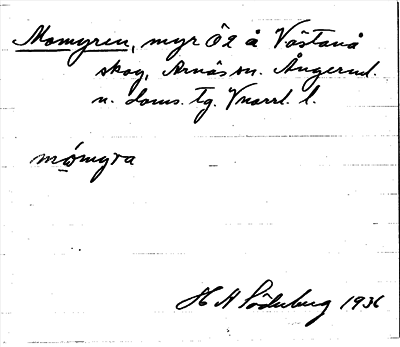 Momyren, myr Ö2 å Västanå
skog, Arnäs sn. Ångerml.
n. doms. tg. V
mómyra
H A Söderberg 1936